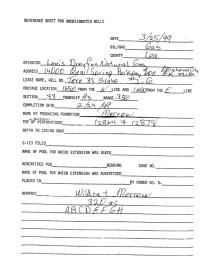 REFERENCE SHEET FOR UNDESIGNATED WELLS
DATE 3/25/99
OIL/GAS Gas
COUNTY Lea
OPERATOR Louis Dreyfus Natural Gas
ADDRESS 14000 Quail Spring Parkway, 600 Oklahoma City OK 73134
LEASE NAME, WELL NO. 33 State # 1 G
FOOTAGE LOCATION 1650 FROM THE N LINE AND 1650 FROM THE E LINE
SECTION 33 TOWNSHIP RANGE 35E
COMPLETION DATE 2/24/99
NAME OF PRODUCING FORMATION Morrow
TOP OF PERFORATIONS 12864 - 12878
DEPTH TO CASING SHOE
C-123 FILED
NAME OF POOL FOR WHICH EXTENSION WAS ASKED
ADVERTISED FOR HEARING CASE NO.
NAME OF POOL FOR WHICH EXTENSION WAS ADVERTISED
PLACED IN BY ORDER NO. R-
REMARKS Wildcat Morrow
320 ac
ABCDEFGH